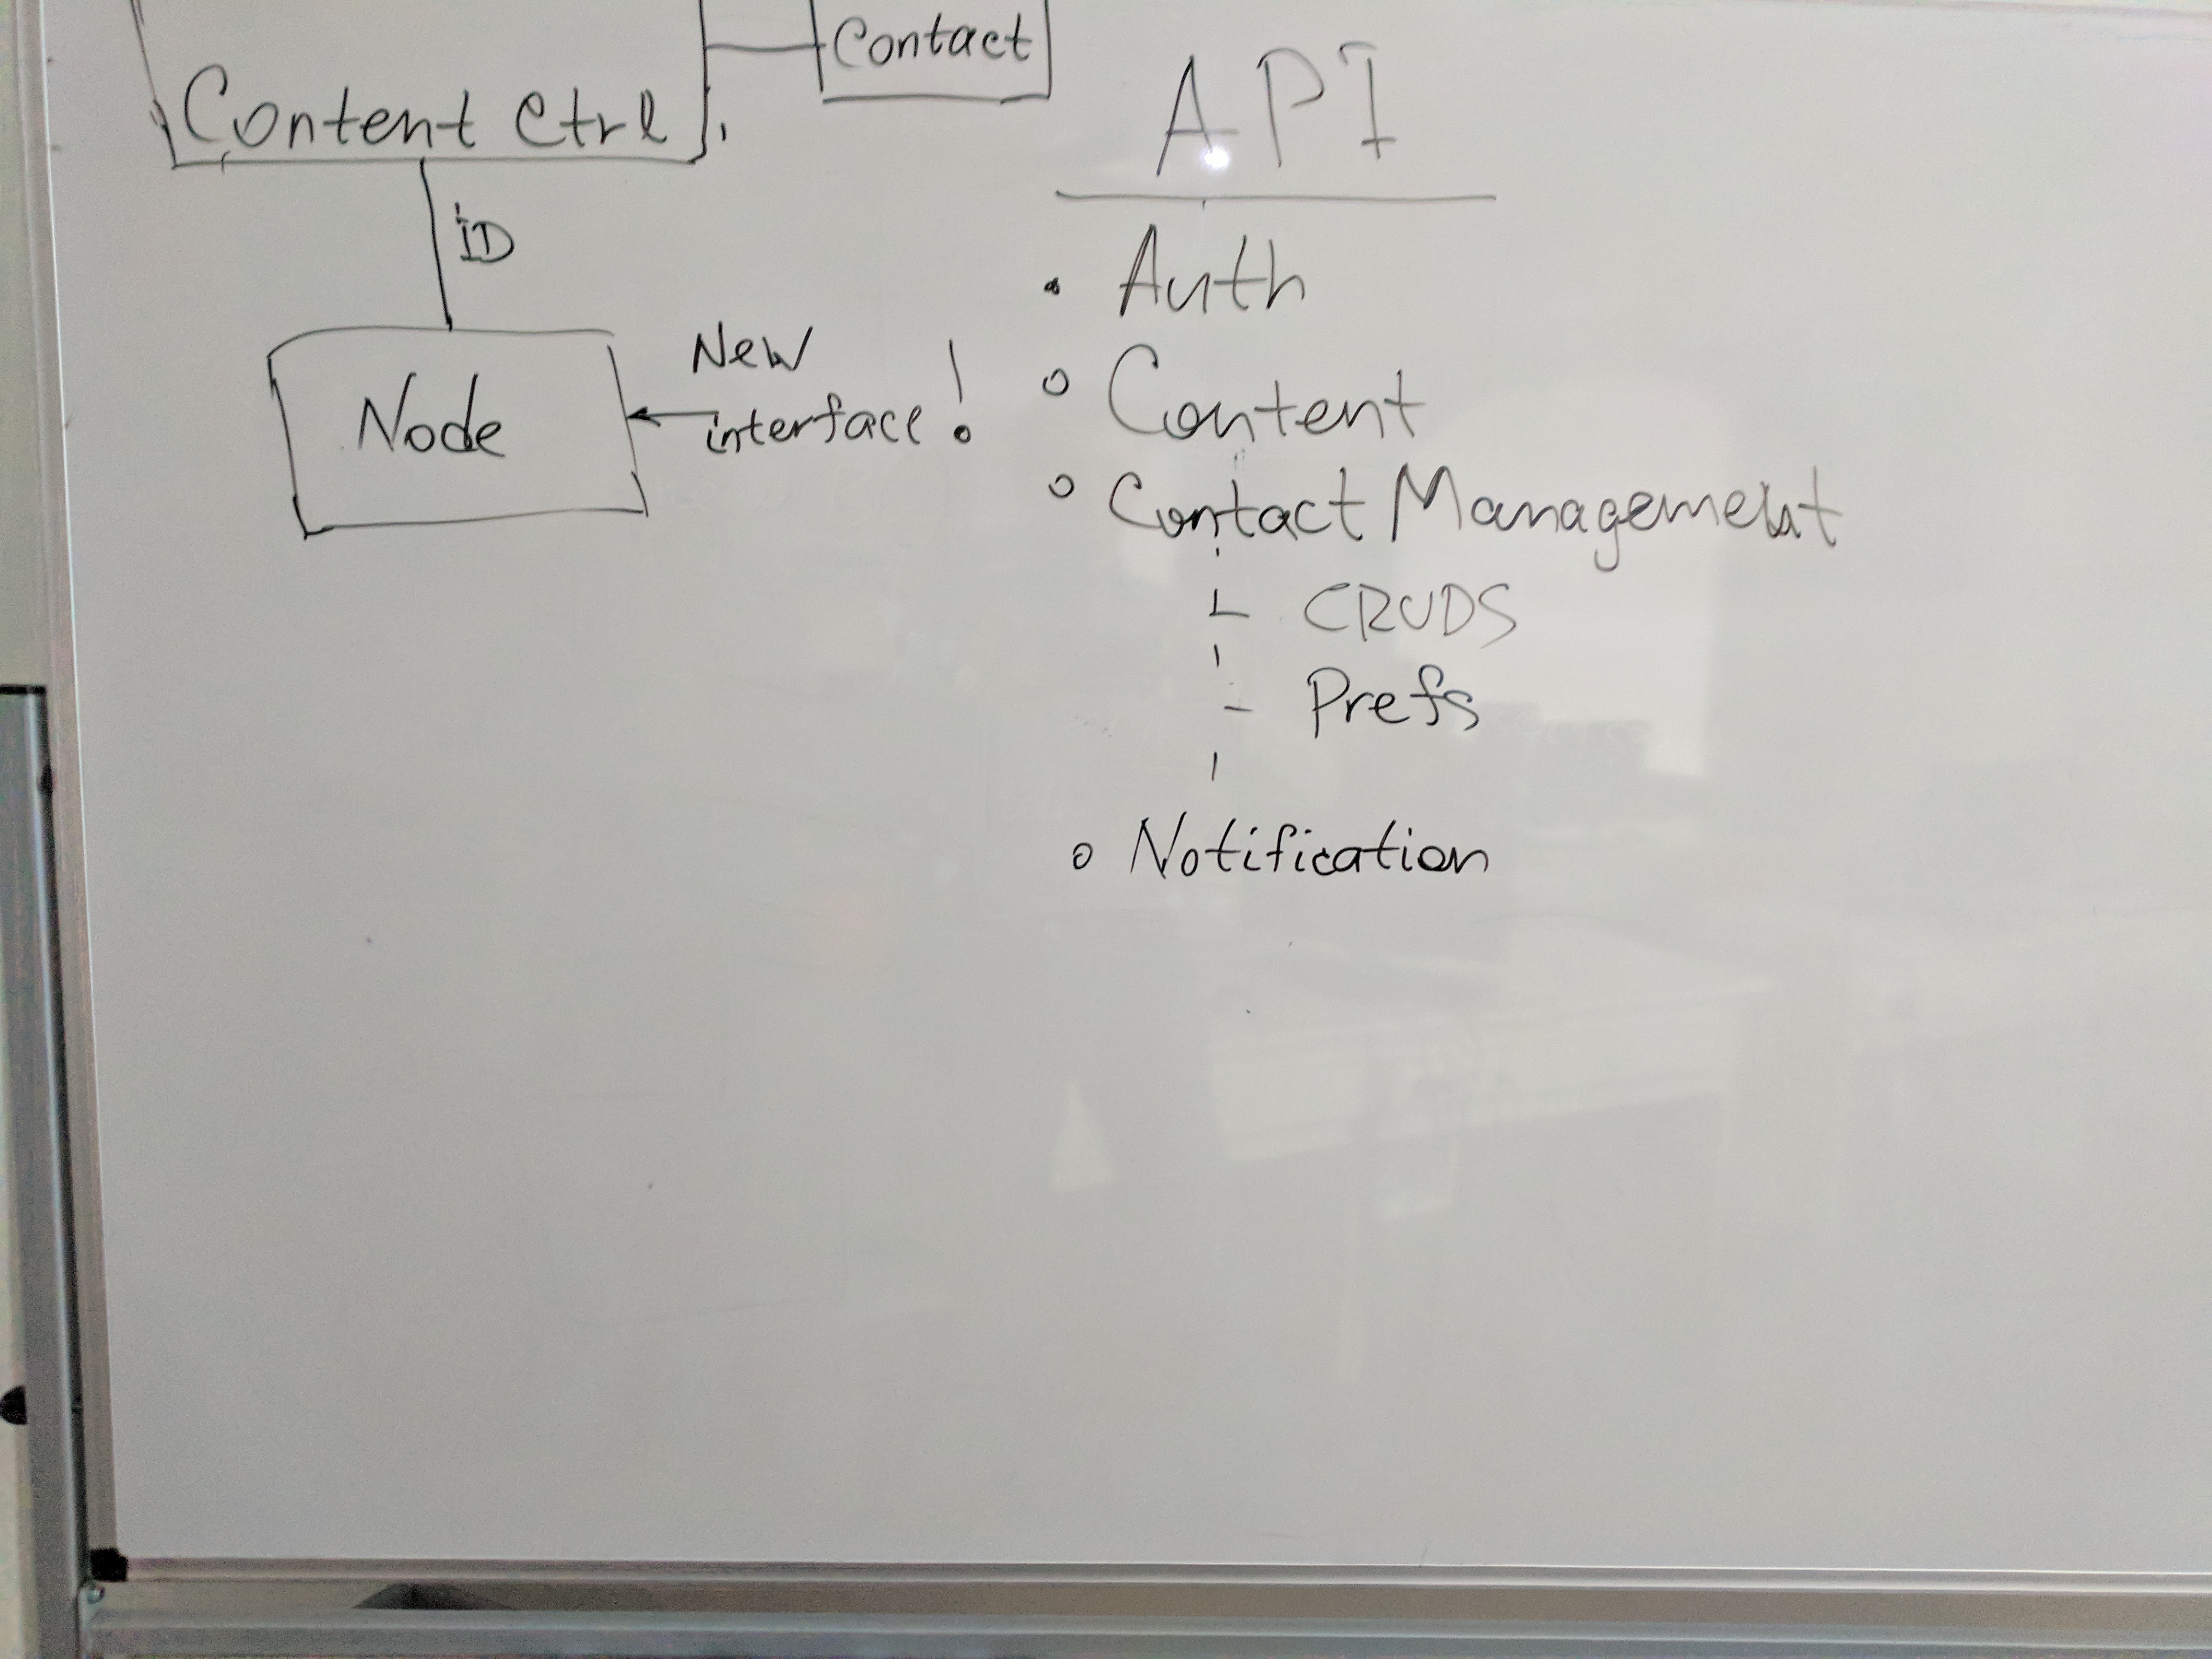 Contact
Content Ctrl
ID
Node
New
interface!
API
• Auth
◦ Content
◦ Contact Management
- CRUDS
- Prefs
◦ Notification